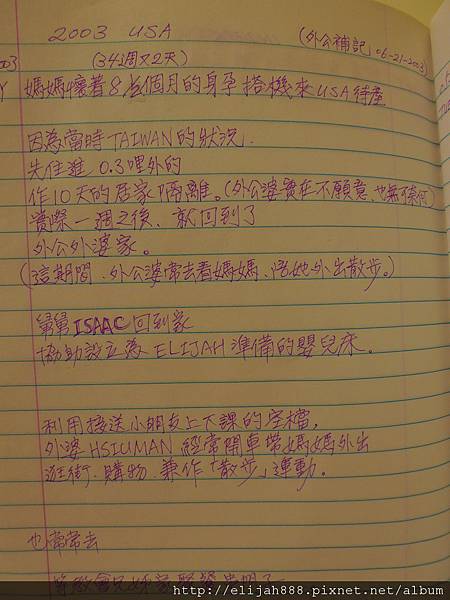 2003 USA
(外公補記」06-21-2003)
(34週又2天)
媽媽懷着8½個月的身孕搭機來USA待產
因為當時TAIWAN的狀況.
先住進0.3哩外的
作10天的居家隔離。(外公婆實在不願意、也無可奈何)
實際一週之後、就回到了
外公外婆家。
(這期間、外公婆常去看媽媽、陪她外出散步。)
舅舅ISAAC回到家
協助設立為ELIJAH準備的嬰兒床。
利用接送小朋友上下課的空檔,
外婆HSIUMAN經常開車帶媽媽外出
逛街.購物.兼作「散步」運動。
也常常去
http://elijah888.pixnet.net/album